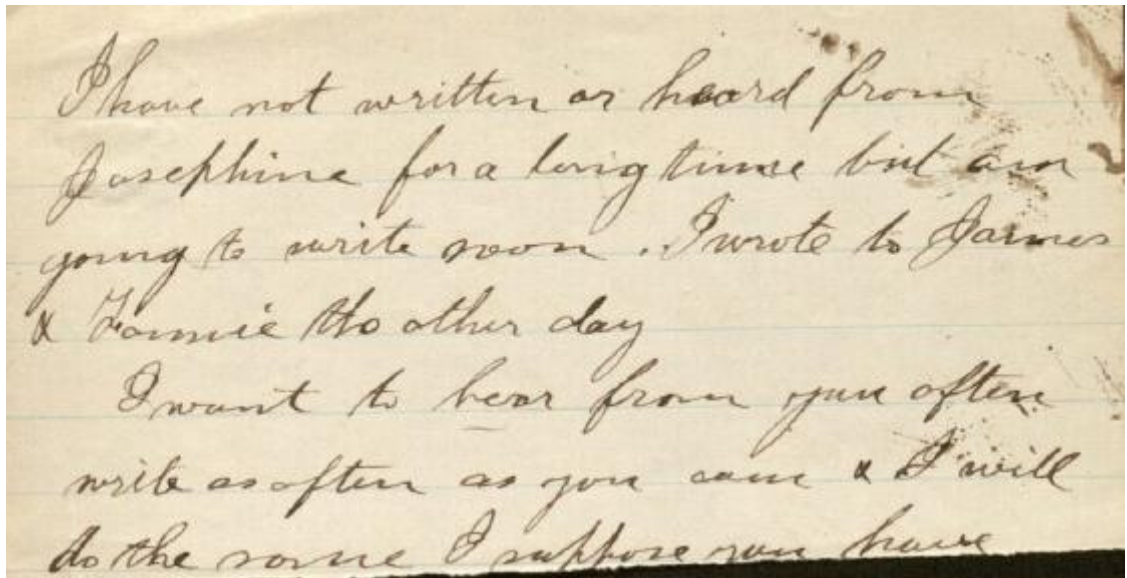 I have not written or heard from
Josephine for a long time but am
going to write soon. I wrote to James
& Fannie the other day
I want to hear from you often
write as often as you can & I will
do the same I suppose you have